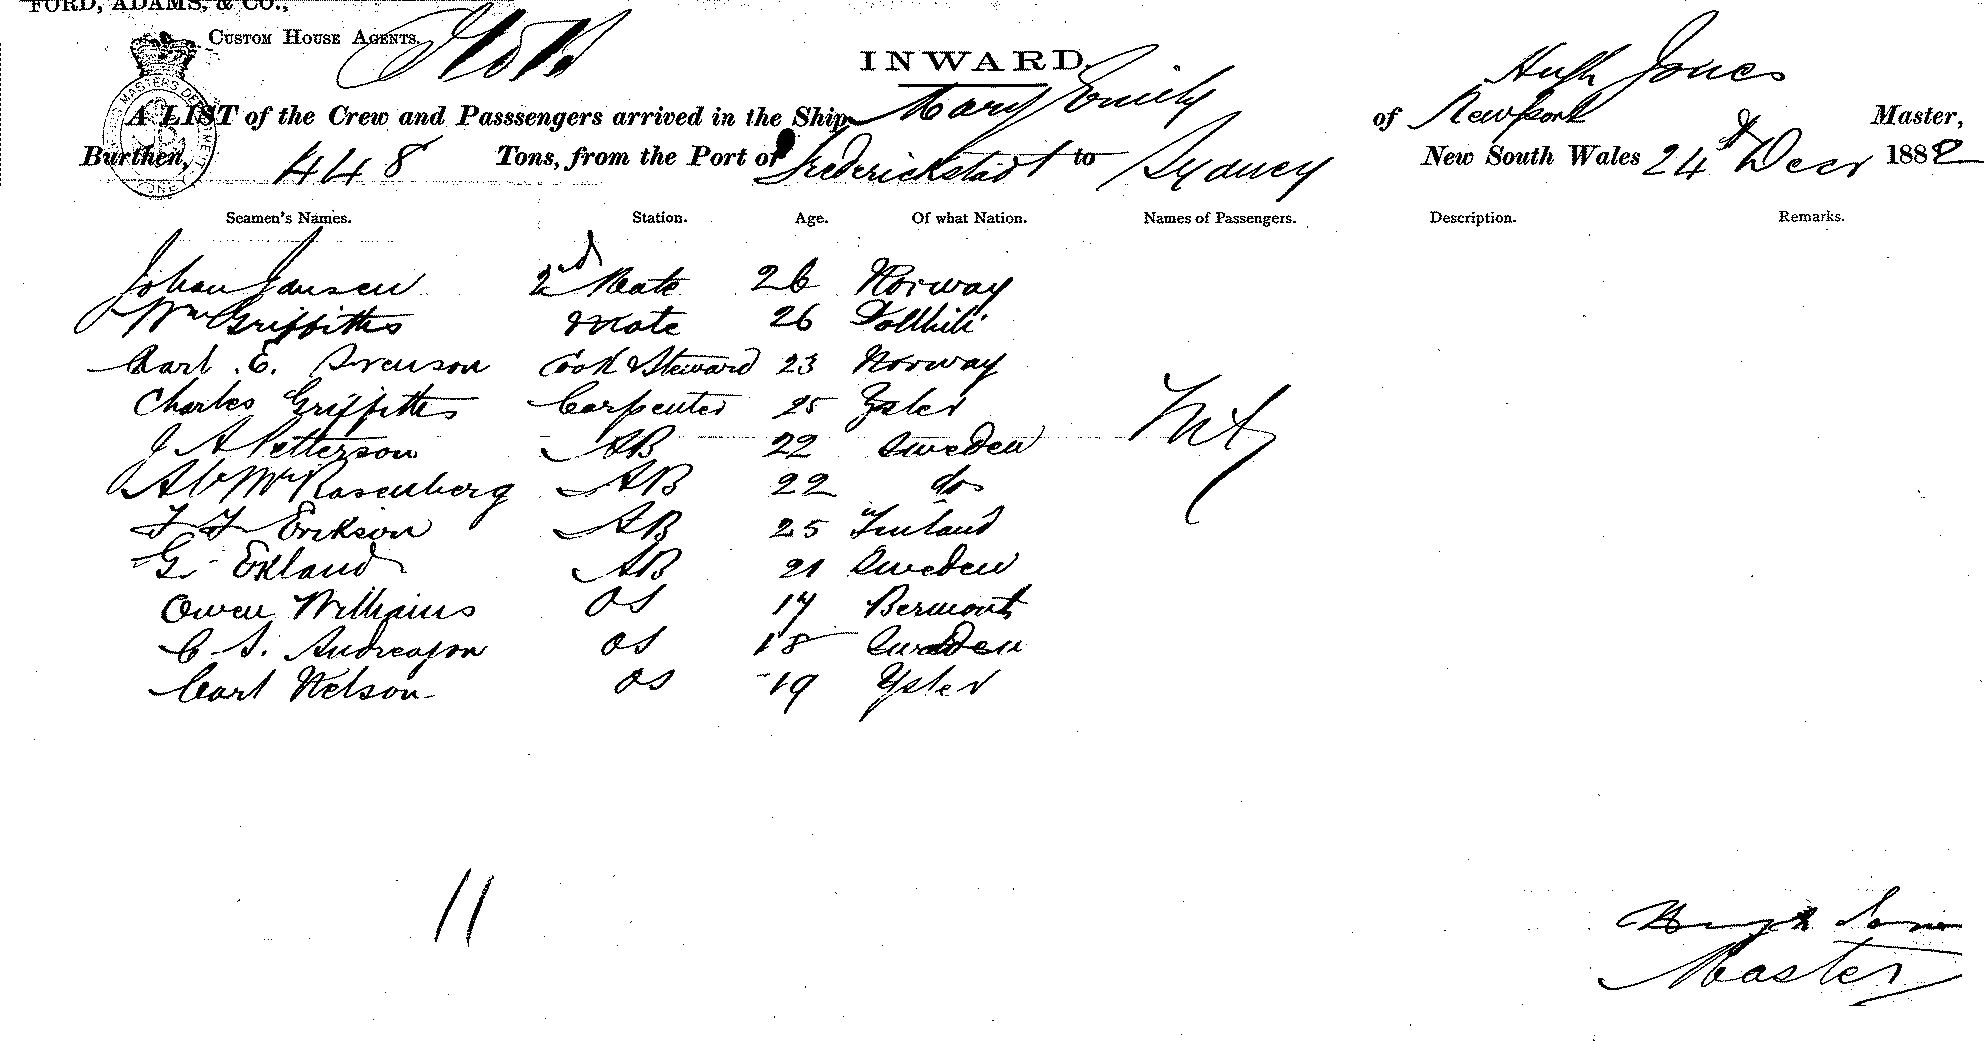 FORD, ADAMS, & CO.,
CUSTOM HOUSE AGENTS.
INWARD.
Hugh Jones
A LIST of the Crew and Passsengers arrived in the Ship Mary Emily of Newport Master,
Burthen, 448 Tons, from the Port of Frederickstadt to Sydney New South Wales 24th Decr 1882
Seamen's Names. Station. Age. Of what Nation. Names of Passengers. Description. Remarks.
Johan Jansen 2nd Mate 26 Norway
Wm Griffiths Mate 26 
Carl . E. Svenson Cook & Steward 23 Norway
Charles Griffiths Carpenter 25 Ysted
J A Petterson AB 22 Sweden
Rosenberg AB 22 do
Erikson AB 25 Finland
G. Ekland AB 21 Sweden
Owen Williams OS 17
C S. Andreason OS 18 Sweden
Carl Nelson OS 19 Ysted
11
Hugh Jones
Master